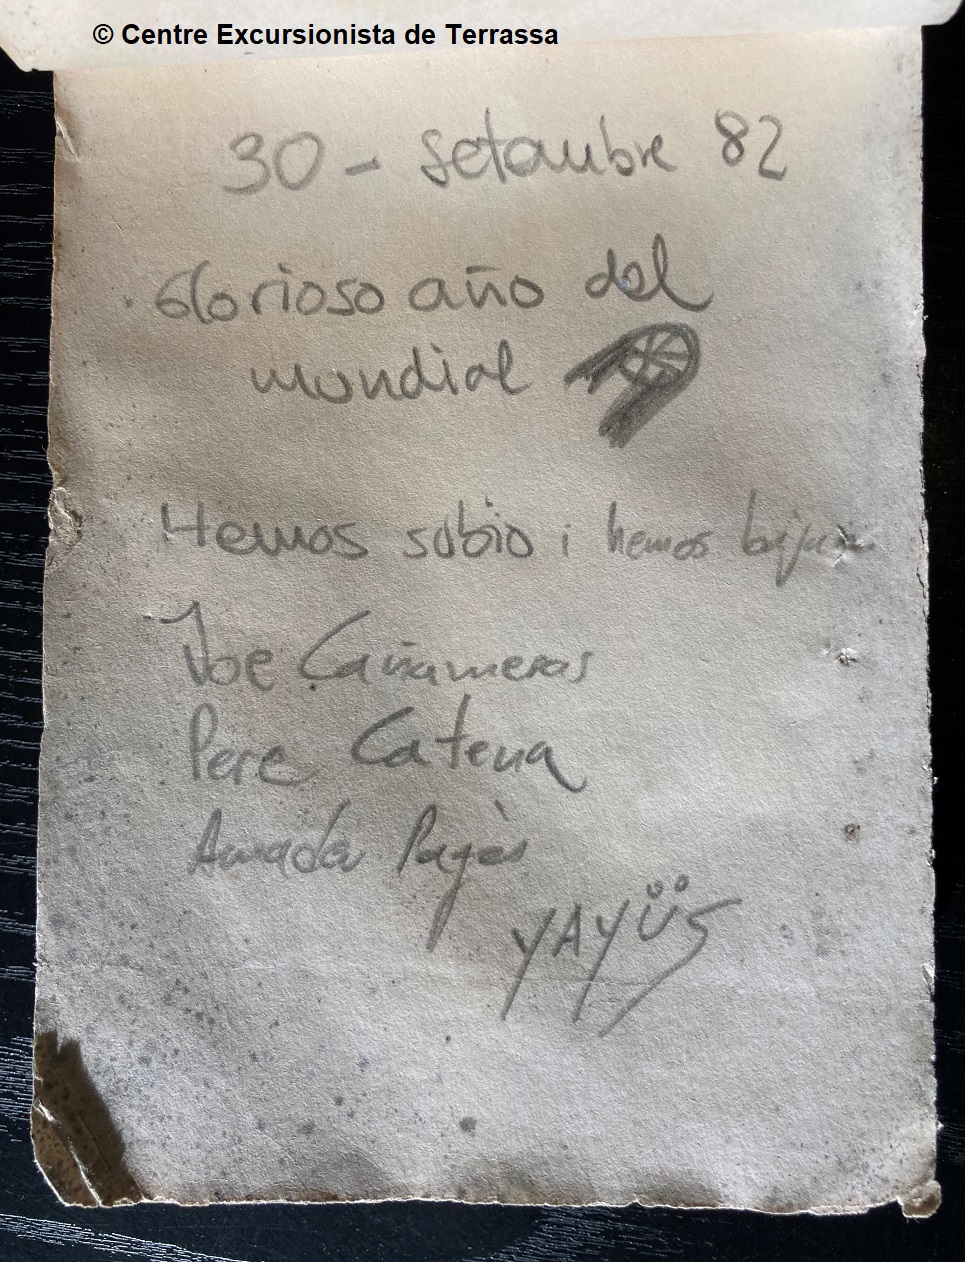 © Centre Excursionista de Terrassa
30 - Setaubre 82
Glorioso año del
mundial
Hemos subio i hemos
Joe Cañameras
Pere Catena
Amador Pagès
YAYÜS